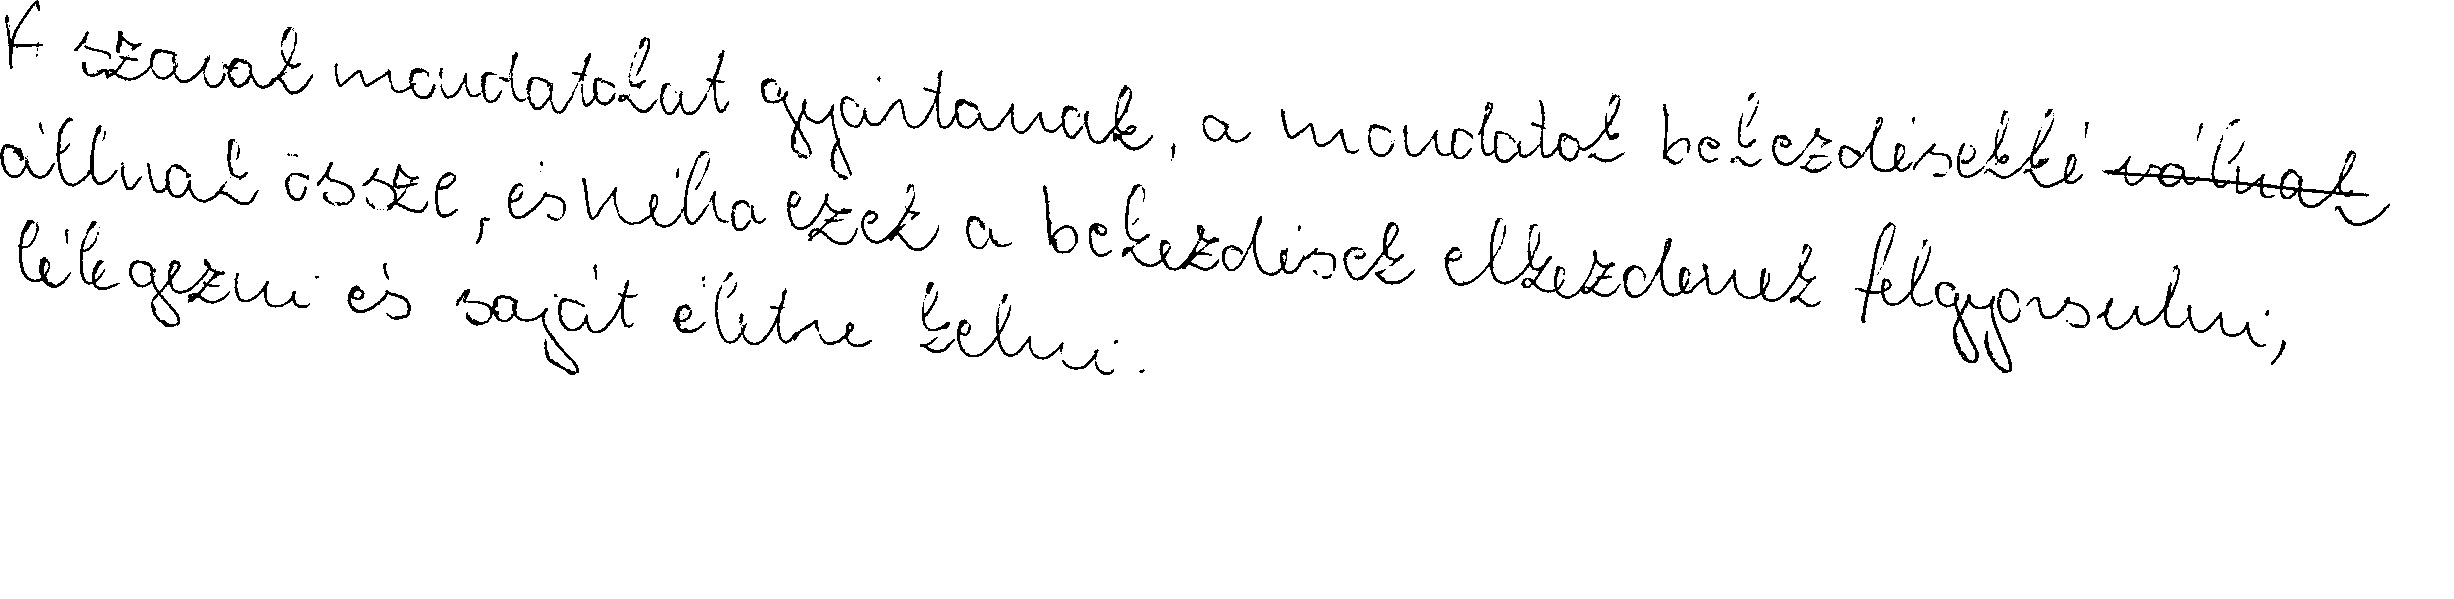 A szavak mondatokat gyártanak, a mondatok bekezdésekké válnak
állnak össze, és néha ezek a bekezdések elkezdenek felgyorsulni,
lélegezni és saját életre kelni.